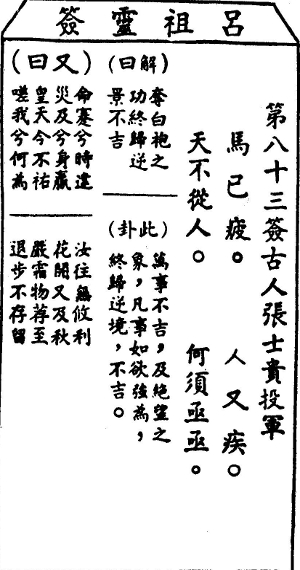 呂祖靈簽
第八十三簽古人張士貴投軍
馬已疲。人又疾。
天不從人。何須亟亟。
(解曰)
奪白袍之
功終歸逆
景不吉
(此卦)
萬事不吉,及絕望之
象,凡事如欲強為,
終歸逆境,不吉。
(又曰)
命蹇兮時違
災及兮身羸
皇天今不祐
嗟我兮何為
汝往無攸利
花開又及秋
嚴霜物荐至
退步不存留